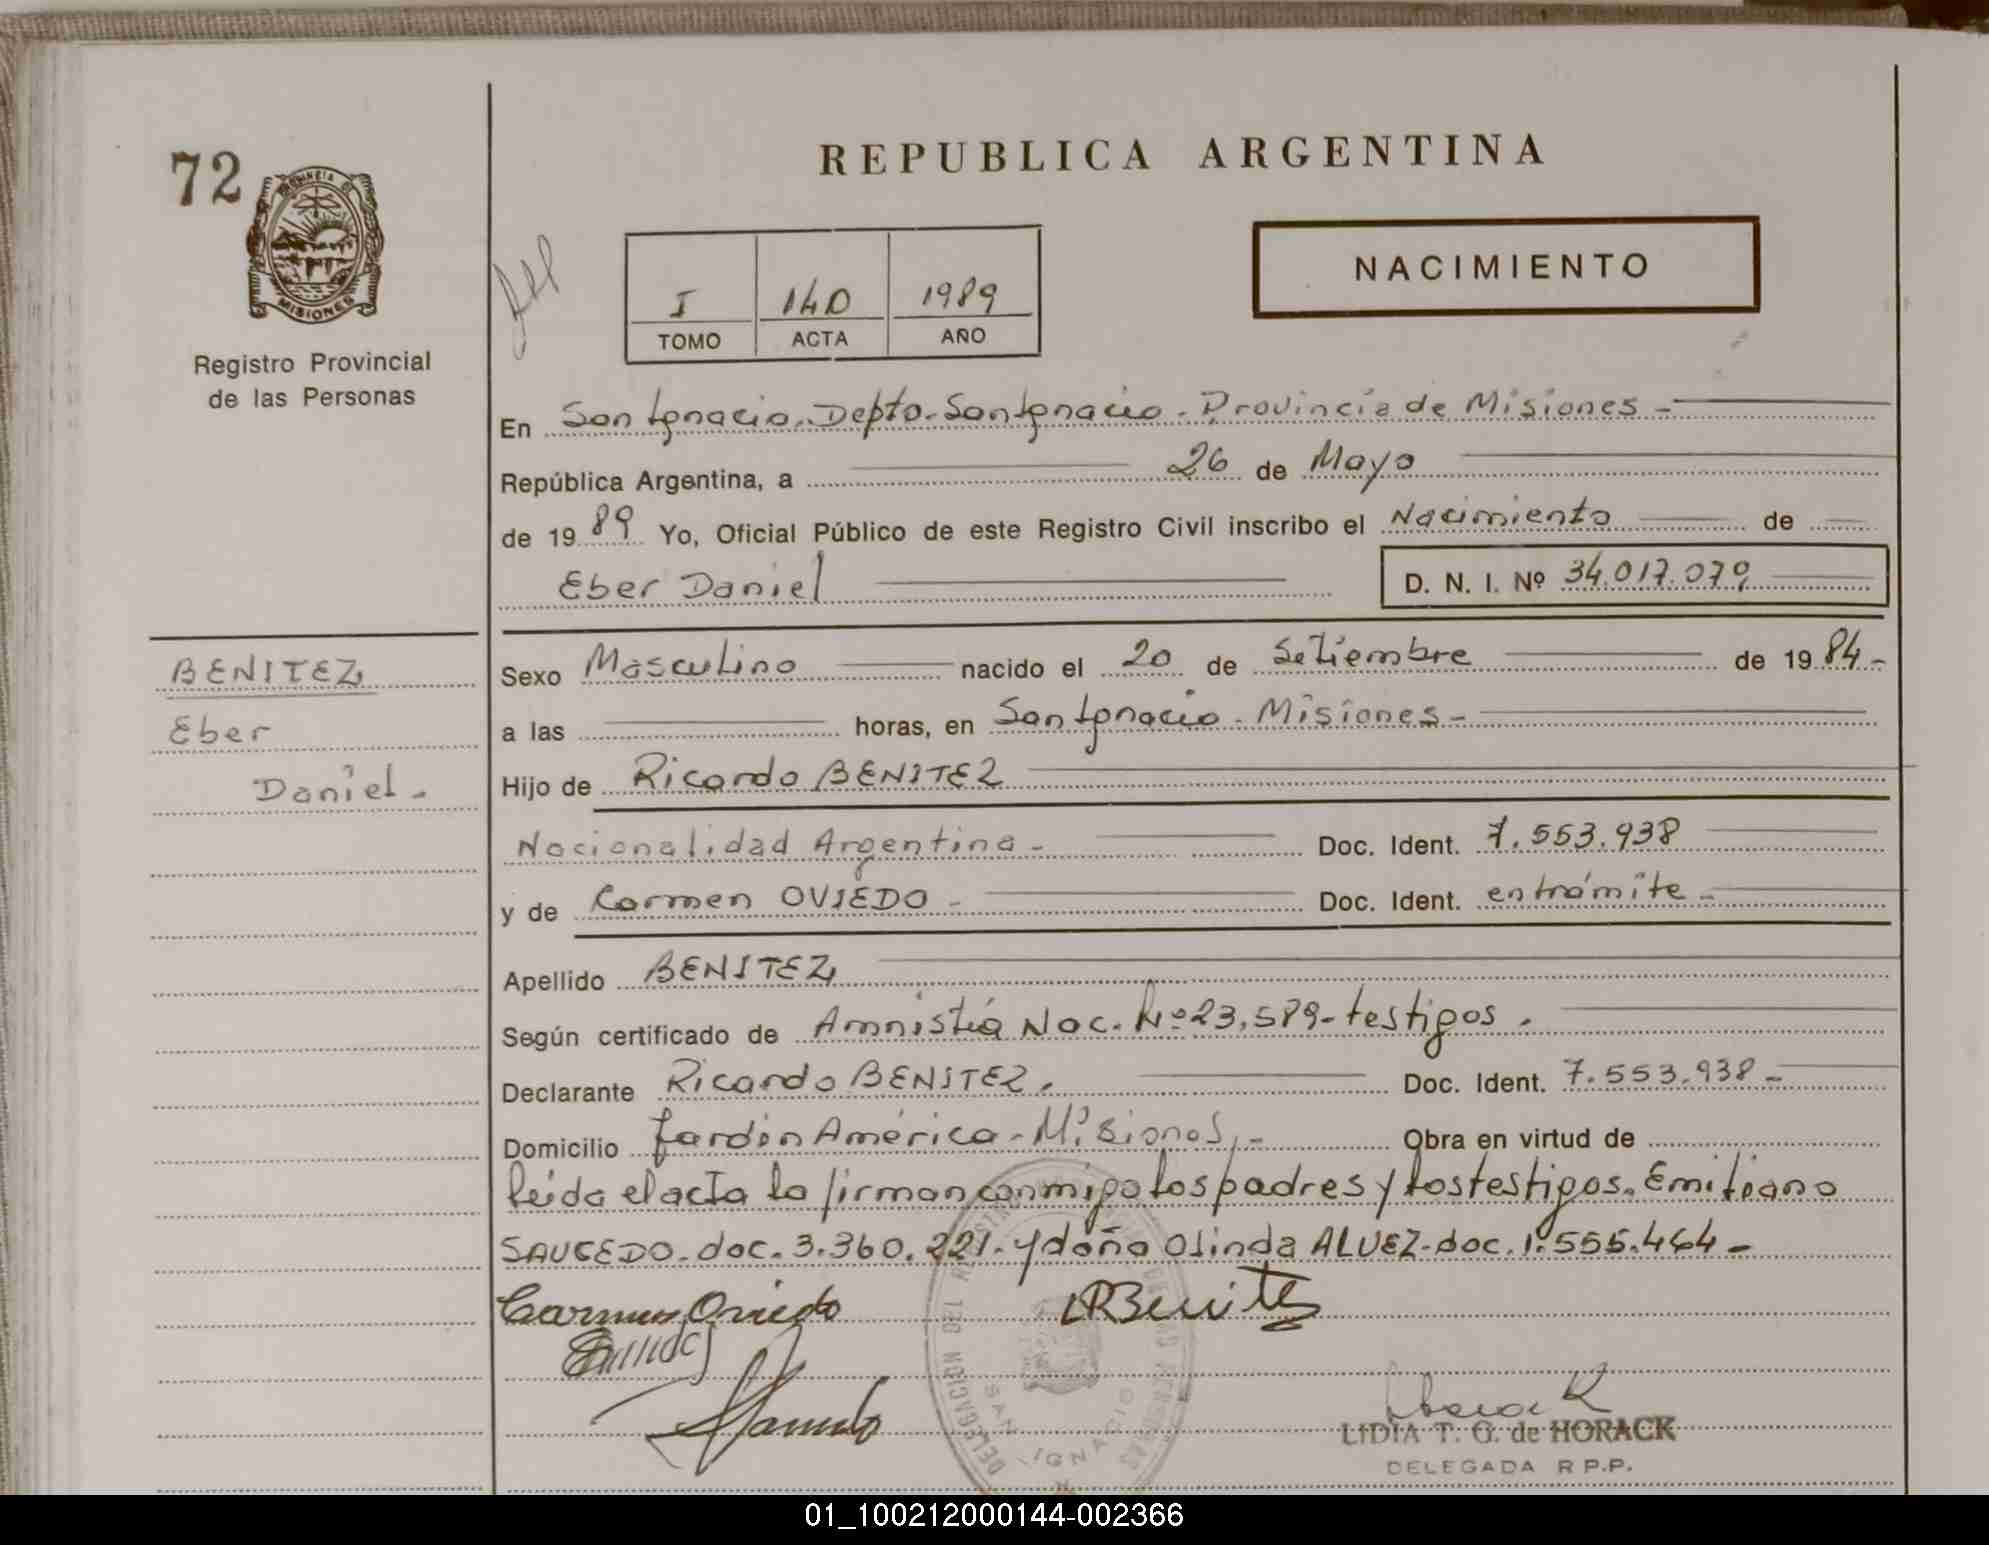 72
PROVINCIA DE
MISIONES
Registro Provincial
de las Personas
BENITEZ
Eber
Daniel.-
REPUBLICA ARGENTINA
I 140 1989
TOMO ACTA AÑO
NACIMIENTO
En San Ignacio. Depto. San Ignacio. Provincia de Misiones -
República Argentina, a 26 de Mayo
de 1989 Yo, Oficial Público de este Registro Civil inscribo el Nacimiento de
Eber Daniel D. N. I. Nº 34.017.079
Sexo Masculino nacido el 20 de Setiembre de 1984.-
a las horas, en San Ignacio - Misiones -
Hijo de Ricardo BENITEZ
Nacionalidad Argentina - Doc. Ident. 7.553.938
y de Carmen OVIEDO - Doc. Ident. en trámite -
Apellido BENITEZ
Según certificado de Amnistía Nac. Nº 23.589 - testigos.
Declarante Ricardo BENITEZ. Doc. Ident. 7.553.938 -
Domicilio Jardín América - Misiones.- Obra en virtud de
leída el acta la firman conmigo los padres y los testigos. Emiliano
SAUCEDO - doc. 3.360.221. y doña Olinda ALVEZ - doc. 1.555.464 -
Carmen Oviedo RBenitez
LIDIA T. G. de HORACK
DELEGADA R P.P.
DELEGACION DEL REGISTRO
SAN IGNACIO
01_100212000144-002366